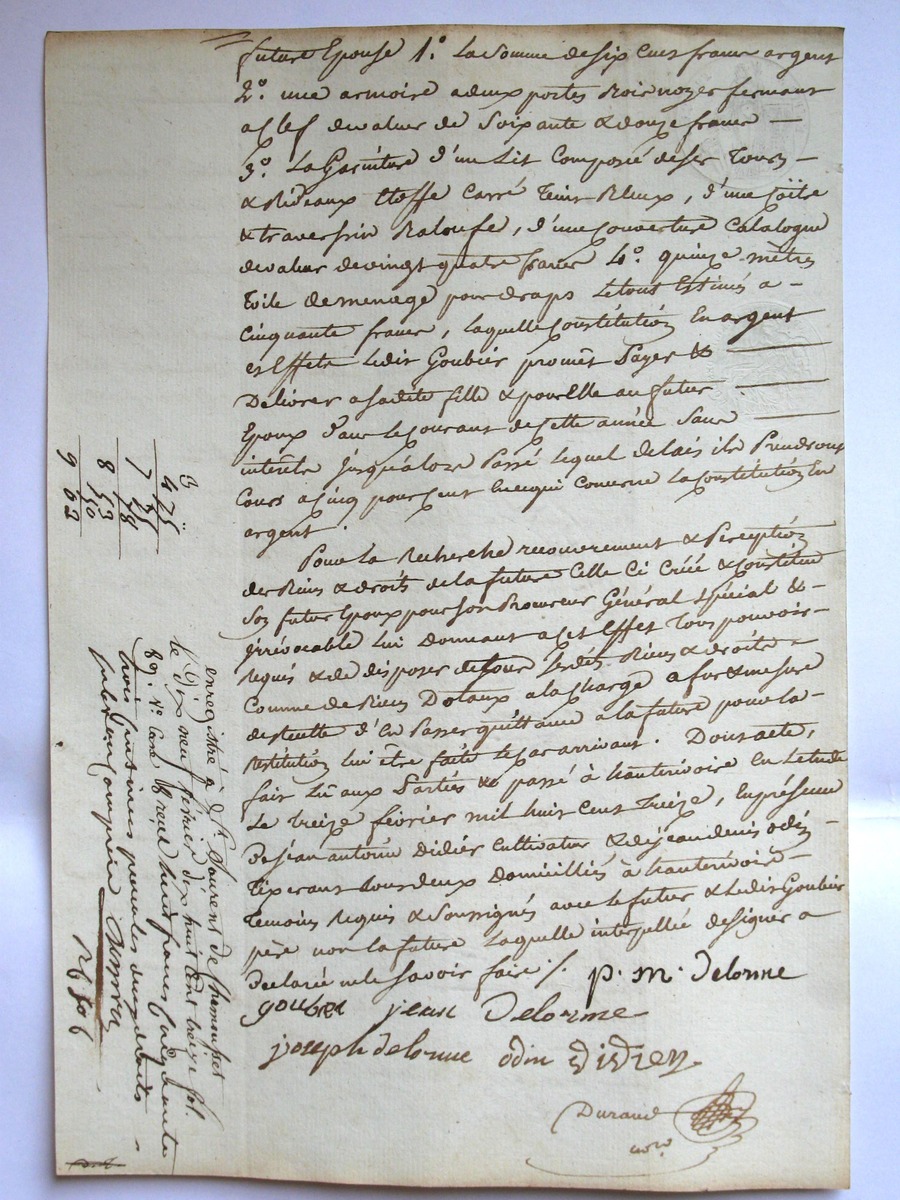 future Epouse 1º. La Somme de six cent francs argent
2º. une armoire a deux portes Bois noyer fermant
a Clef de valeur de Soixante & douze francs —
3º. La Garniture d'un Lit Composée de ses Tours —
& Rideaux Etoffe Carré Teint Bleux, d'une Coïtre
& traversin Baloufe, d'une couverture Catalogue
de valeur de vingt quatre francs 4º. quinze mètres
Toile de menage pour draps Le tout Estimés a —
Cinquante francs, laquelle Constitution En argent
et Effets Ledit Goubier promet Payer &
Délivrer a sadite fille & pour Elle au futur
Epoux dans le courant de cette année Sans
intérêts jusqu'alors Passé lequel delais ils Prendront
Cours a Cinq pour Cent En ce qui Concerne la Constitution En
argent.
Pour la Recherche recouvrement & Perception
des Biens & droits de la future Celle Ci Créé & Constitue
Son futur Epoux pour Son Procureur Général Spécial &
irrévocable Lui Donnant a Cet Effet Tous pouvoirs
Requis & de disposer de tous Lesdits Biens & droits
Comme de Biens Dotaux a la Charge a fur & mesure
de d'En Passer quittance a la future pour la
Restitution lui être faite le Cas arrivant. Dont acte,
fait Lû aux Parties & passé à hauterivoire En L'etude
Le treize février mil huit Cent Treize, En présence
De jean antoine Didier Cultivateur & de jean denis odin
Tixerant tous deux Domiciliés à hauterivoire
Temoins Requis & Soussignés avec le futur & Ledit Goubier
père non la future Laquelle interpellée de signer a
Déclaré ne le Savoir faire ./. p. m. Delorme
goubier jean Delorme
joseph delorme odin Didier
Durand
no.re
4 75
7 75
78
8 53
50
9 02
enregistré à St. Laurent de Chamousset
le dix neuf février dix huit cent treize fol.
89. Vº. Case Reçu huit francs cinquante
trois centimes pour les deux droits
subvention comprise